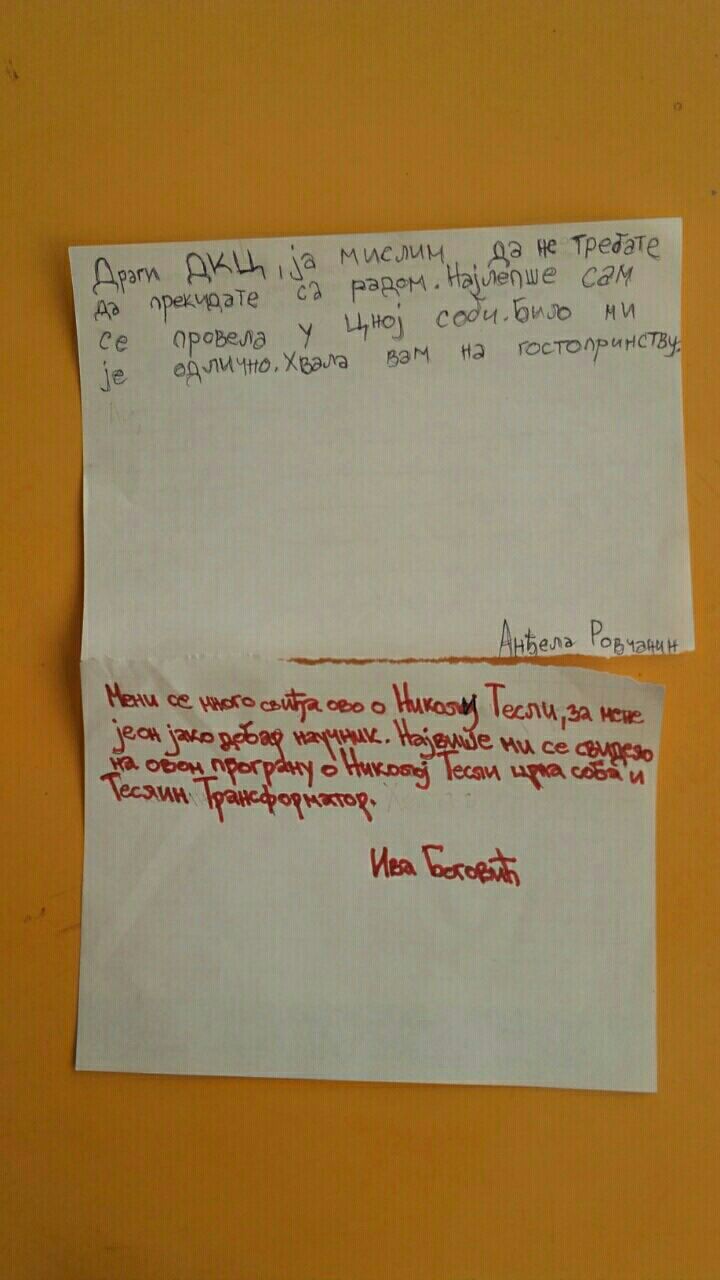 Драги ДКЦ, ја мислим да не требате
да прекидате са радом. Најлепше сам
се провела у Цној соби. Било ми
је одлично. Хвала вам на гостопринству.
Анђела Ровчанин
Мени се много свиђа ово о Николи Тесли, за мене
је он јако добар научник. Највише ми се свидело
на овом програну о Николој Тесли црна соба и
Теслин Трансформатор.
Ива Боговић